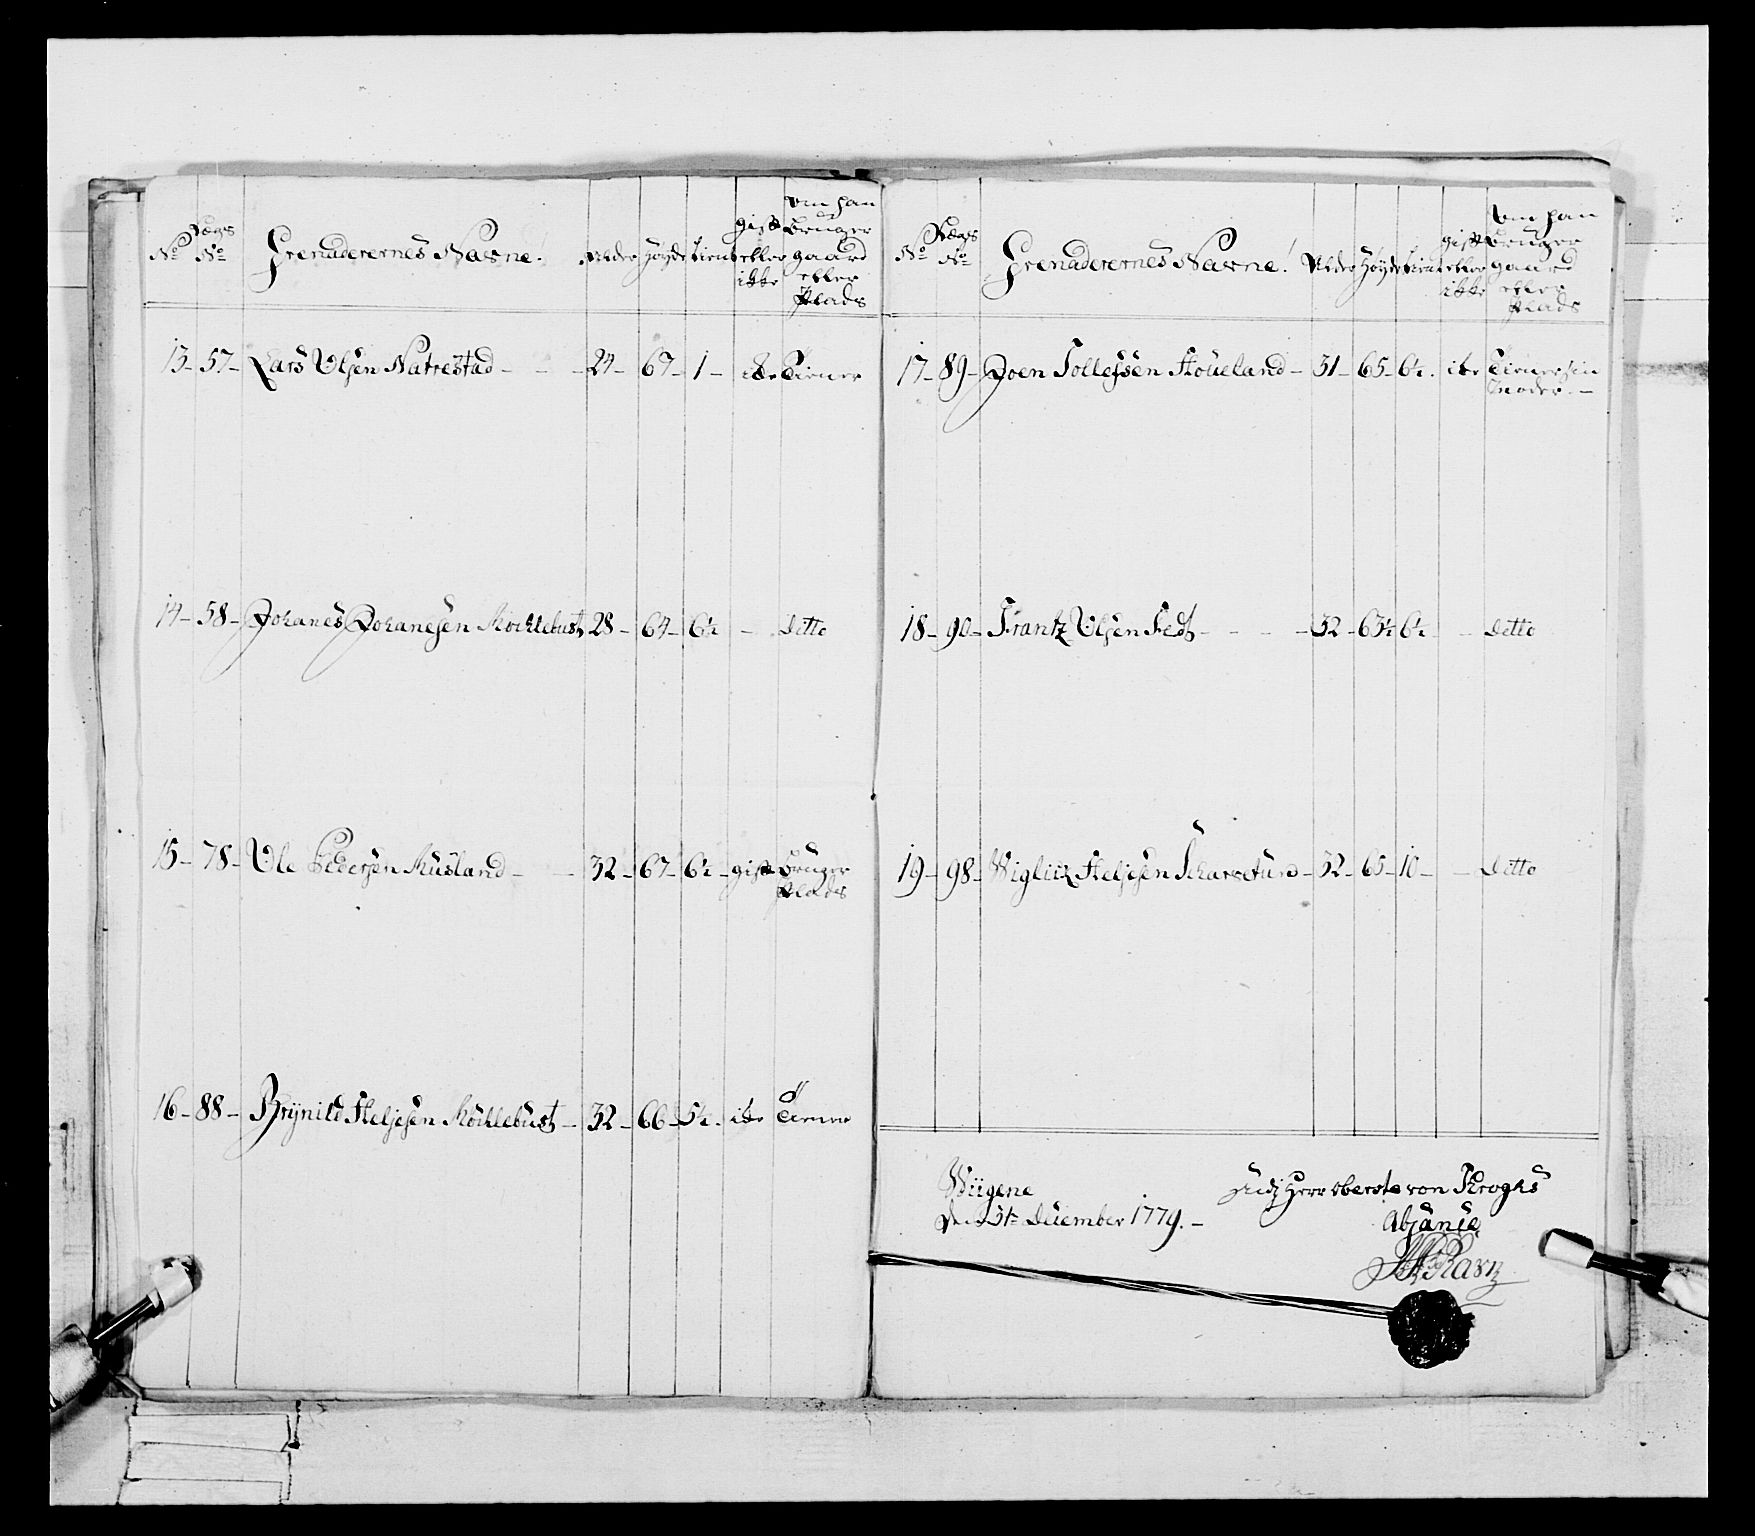 No Lægs No Grenaderernes Navne! Alder Høyde tient gift eller ikke om han bruger gaard eller Plads
13 - 57 - Lars Olsen Natrestad - - - 24 - 67 - 1 - ike Tiener
14 - 58 - Johanes Johanesen Mochlebust 28 - 64 - 6½ - ditto
15 - 78 - Ole Pedersen Ausland - - 32 - 67 - 6½ - gift bruger
Plads
16 - 88 - Brynild Heljesen Mochlebust - 32 - 66 - 5½ - ike Tiener
No Lægs No Grenaderernes Navne! Alder Høyde tient gift eller ikke om han bruger gaard eller Plads
17 - 89 - Joen Tollefsen Houeland - 31 - 65 - 6½ - ike Tiener sin
Moder -
18 - 90 - Frantz Olsen Fedt - - - - 32 - 63½ 6½ - ditto
19 - 98 - Wigliik Heljesen - 32 - 65 - 10 - - ditto
Wiigene
den 31te December 1779. -
Herr oberste von Kroghs